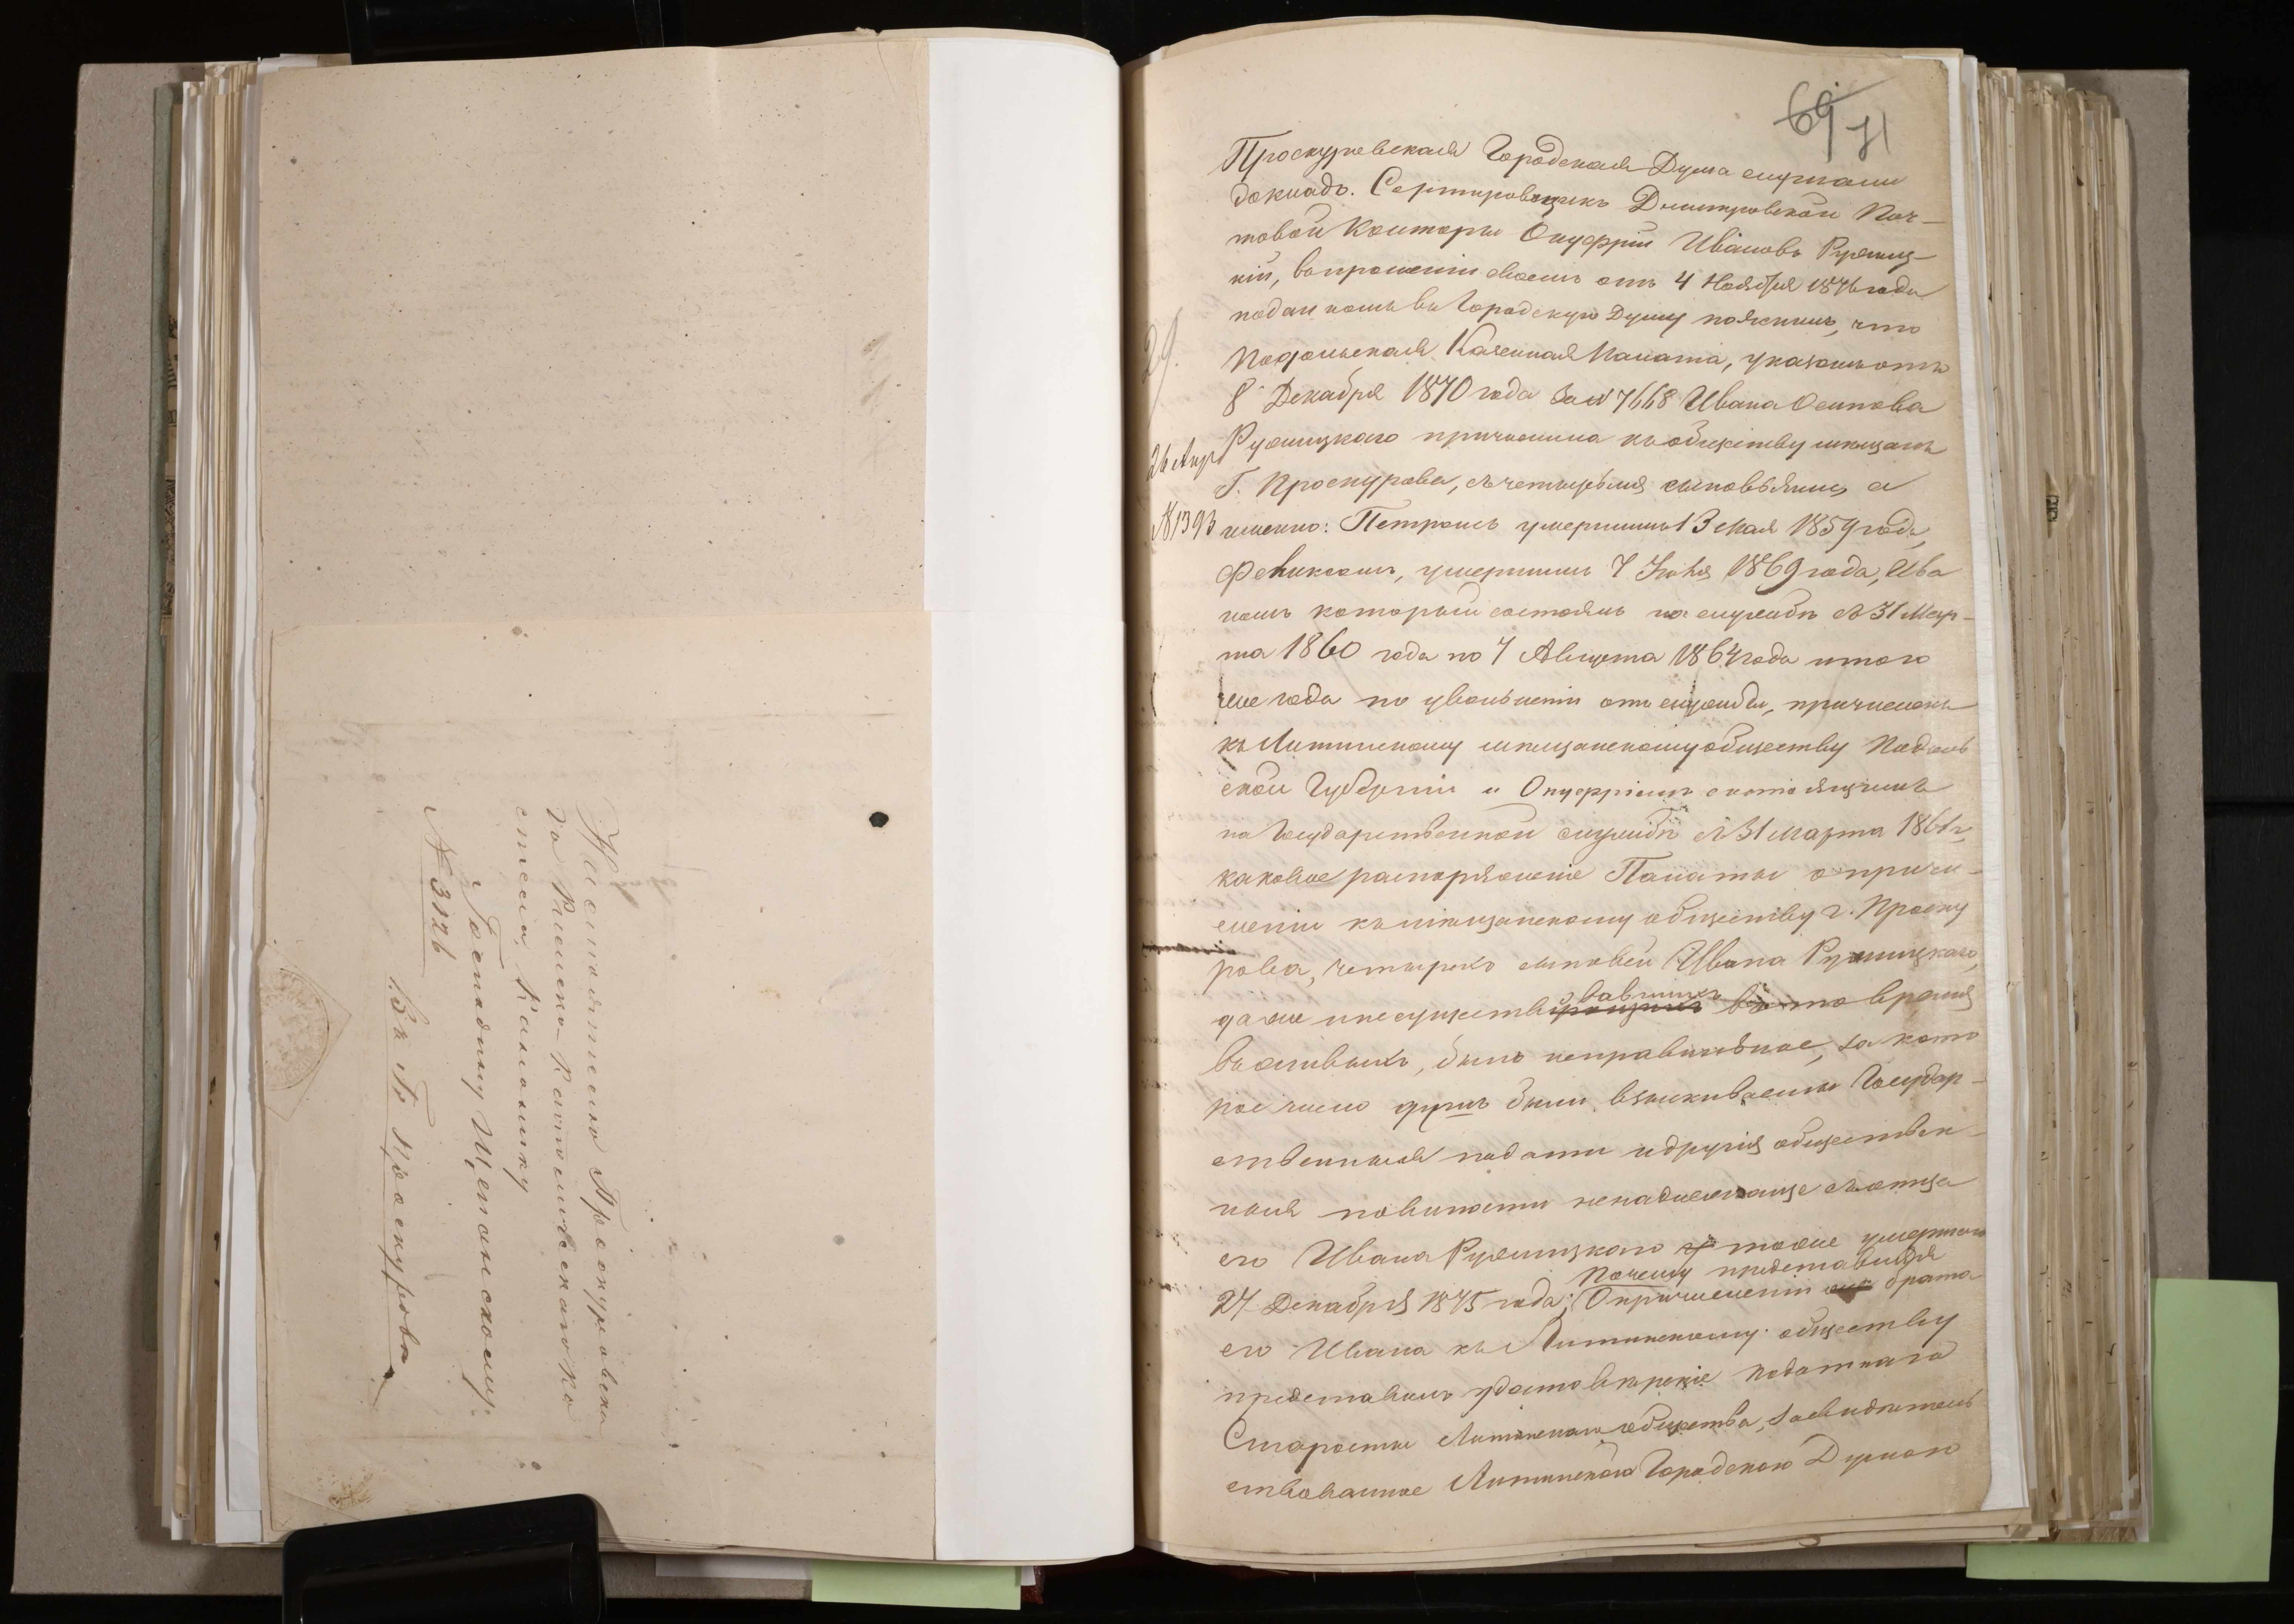 Настоятелю Проскуровска
го Римско-Католическаго Ко
стела, Канонику
Господину Щепанскому.
№ 3126
Въ Г. Проскуровѣ
69
71
Проскуровская Городская Дума слушали
докладъ. Сортировщикъ Дмитровской Поч-
товой Конторы Онуфрій Ивановъ Ружиц-
кій, въ прошеніи своемъ отъ 4 Ноября 1876 года
поданномъ въ Городскую Думу пояснилъ, что
Подольская Казенная Палата, указомъ отъ
8 Декабря 1870 года за № 7668 Ивана Осипова
Ружицкого причислила къ обществу мѣщанъ
Г. Проскурова, съ четырьмя сыновьями, а
именно: Петромъ умершимъ 13 Мая 1859 года,
Феликсомъ, умершимъ 7 Іюля 1869 года, Ива
номъ который состоялъ на службѣ съ 31 Мар-
та 1860 года по 7 Августа 1864 года и того
же года по увольненіи отъ службы, причисленъ
къ Литинскому мѣщанскому обществу Подоль
ской Губерніи и Онуфріемъ состоящимъ
на Государственной службѣ съ 31 Марта 1861 г.,
каковое распоряженіе Палаты о причи-
сленіи къ мѣщанскому обществу г. Проску
рова, четырехъ сыновей Ивана Ружицкаго,
даже и не существовавшихъ въ то время
въ живыхъ, было неправильное, за кото
рое число душъ были взыскиваемы Государ-
ственныя подати и другія обществен-
ныя повинности ненадлежаще съ отца
его Ивана Ружицкаго тоже умершаго
27 Декабря 1875 года; Почему представляя
О причисленіи брата
его Ивана къ Литинскому обществу
представилъ удостовѣреніе податнаго
Старосты Литинскаго общества, засвидѣтель
ствованное Литинскою Городскою Думою
29.
26 Апр
№ 1393